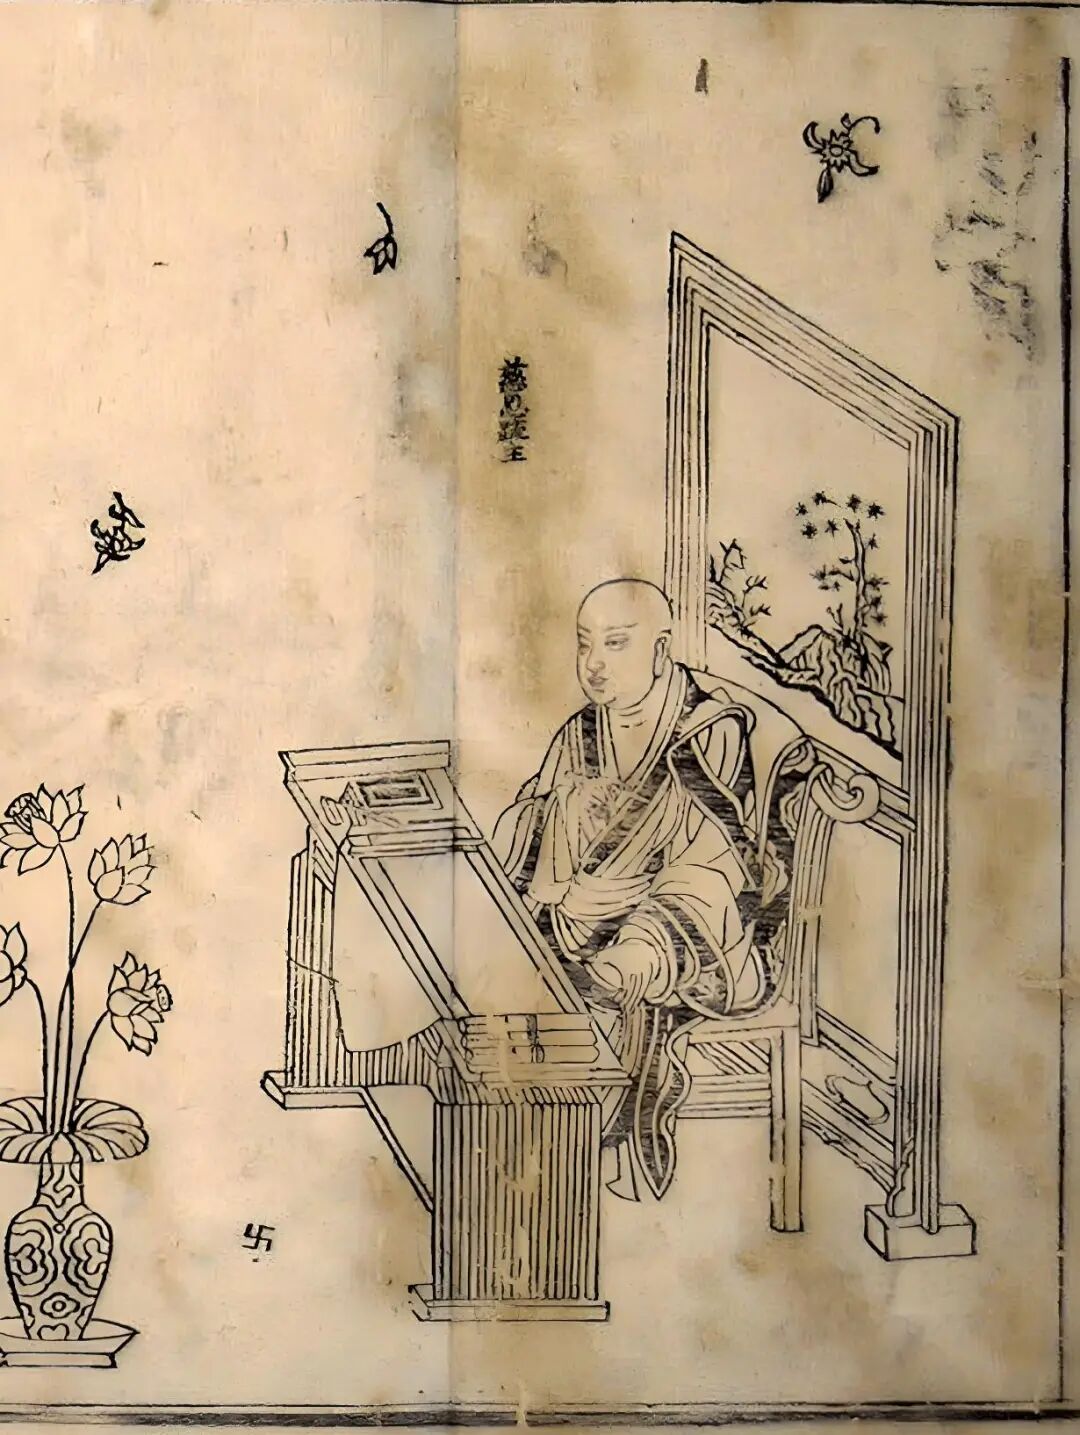 慈恩疏主
卐